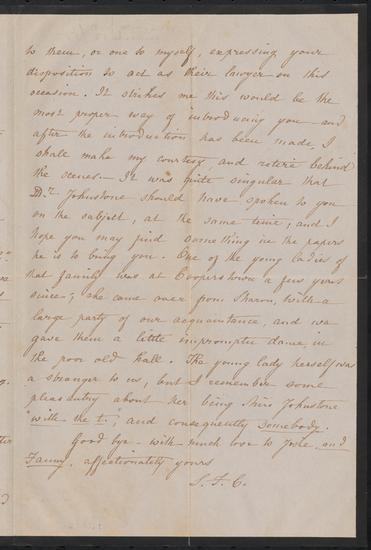 to them, or one to myself, expressing your
disposition to act as their lawyer on this
occasion. It strikes me this would be the
most proper way of introducing you and
after the introduction has been made, I
shall make my courtesy, and retire behind
the scenes. It was quite singular that
Dr. Johnstone should have spoken to you
on the subject, at the same time; and I
hope you may find something in the papers
he is to bring you. One of the young ladies of
that family was at Cooperstown a few years
since; she came over from Sharon, with a
large party of our acquaintance, and we
gave them a little impromptu dance, in
the poor old hall. The young lady herself was
a stranger to us, but I remember some
pleasantry about her being Miss Johnstone
"with the t."; and consequently somebody.
Good bye - with much love to Josie, and
Fanny. affectionately yours
S. F. C.